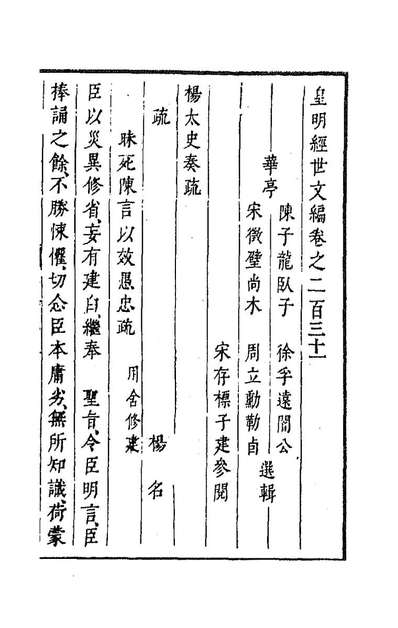 皇明經世文編卷之二百三十一
華亭
陳子龍臥子 徐孚遠闇公
宋徵璧尚木 周立勳勒卣 選輯
宋存標子建參閱
楊太史奏疏
疏 楊名
昧死陳言以效愚忠疏 用舍修建
臣以災異修省、妄有建白、繼奉 聖旨、令臣明言、臣
捧誦之餘、不勝悚懼、切念臣本庸劣、無所知識、荷蒙